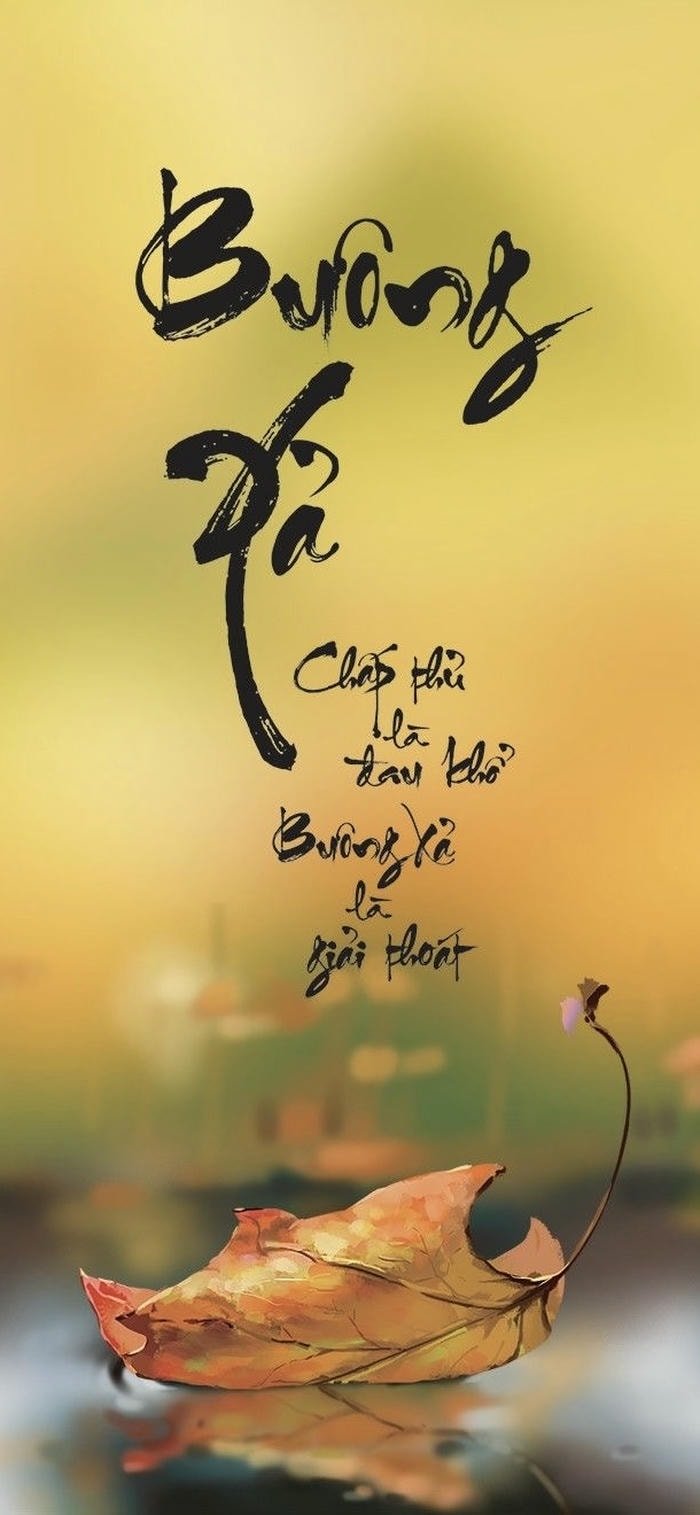 Buông
Xả
Chấp thủ
là
đau khổ
Buông Xả
là
giải thoát